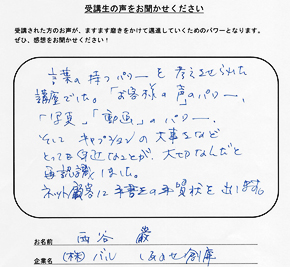 受講生の声をお聞かせください
受講された方のお声が、ますます磨きをかけて邁進していくためのパワーとなります。
ぜひ、感想をお聞かせください！
言葉の持つパワーを考えさせられた
講座でした。「お客様の声」のパワー、
「写真」「動画」のパワー、
そしてキャプションの大事さなど
とっても身近なことが、大切なんだと
再認識しました。
ネット顧客に年賀状を出します
お名前 西谷 巌
企業名 (株)パル しあわせ創庫